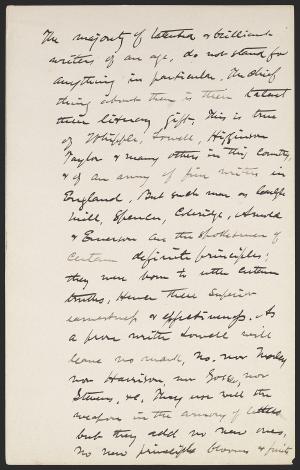 The majority of talented & brilliant
writers of an age, do not stand for
anything in particular. The chief
thing about them is their talent
their literary gift. This is true
of Whipple, Lowell, Higginson
Taylor & many others in this country,
& of an army of fine writers in
England. But such men as Carlyle
Mill, Spencer, Coleridge, Arnold
& Emerson are the spokesmen of
certain definite principles;
they were born to utter certain
truths, Hence their superior
earnestness & effectiveness. As
a prose writer Lowell will
leave no mark, no. nor Morley
nor Harrison, nor Gosse, nor
Stevens, &c. They nor will the
weapons in the armory of letters
but they add no new ones,
no new principle blooms & fruits